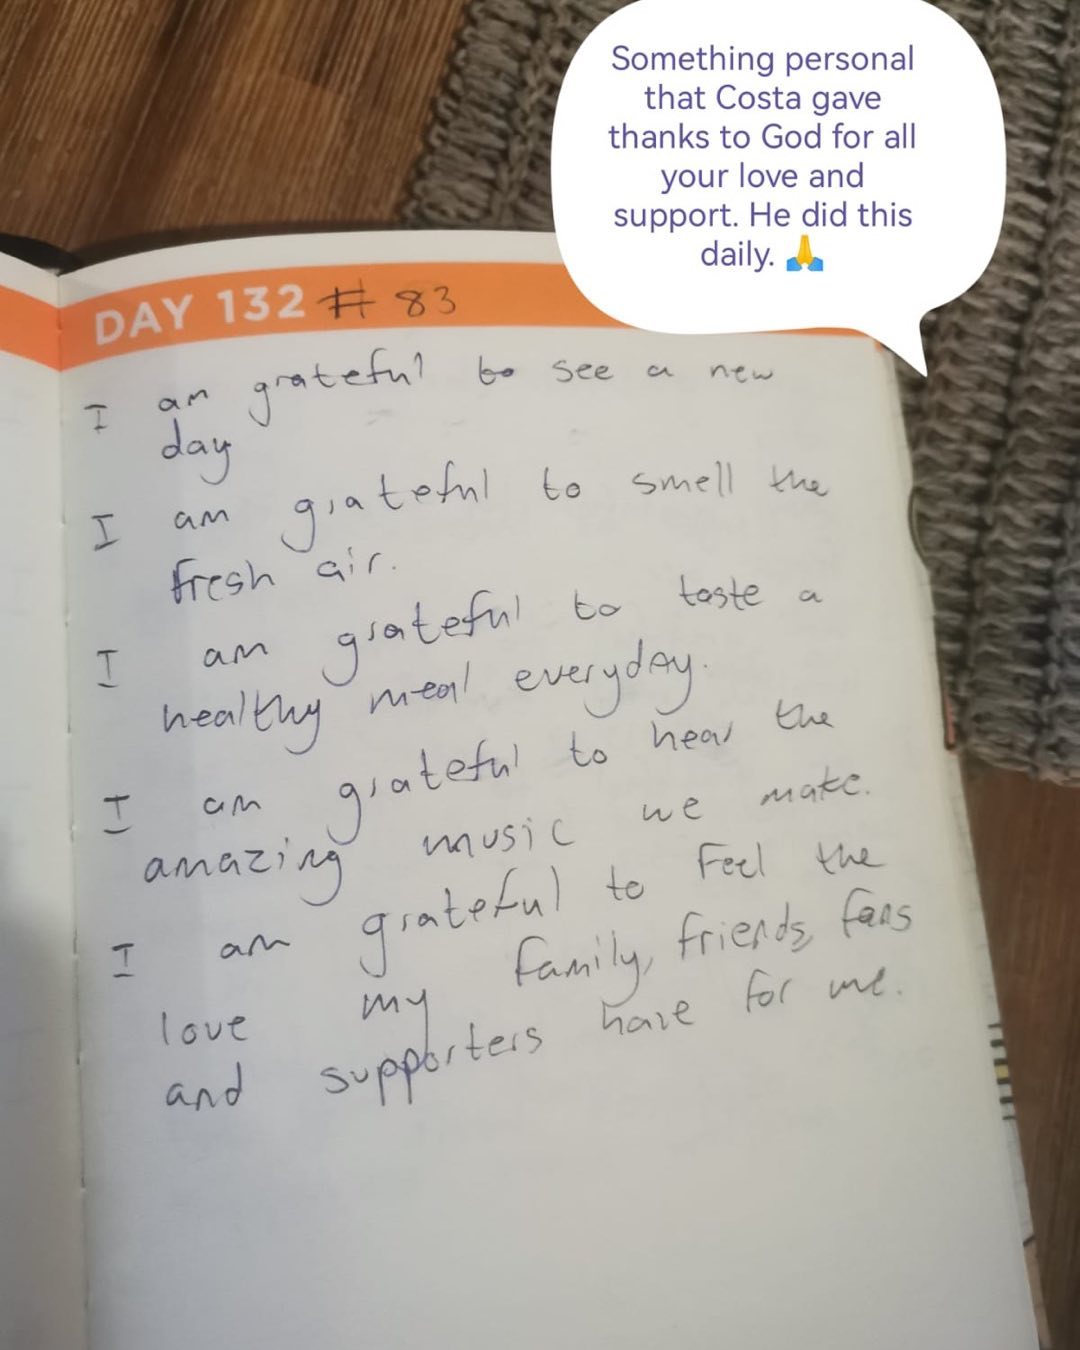 Something personal
that Costa gave
thanks to God for all
your love and
support. He did this
daily. 🙏
DAY 132 # 83
I am grateful to see a new
day
I am grateful to smell the
fresh air.
I am grateful to taste a
healthy meal everyday.
I am grateful to hear the
amazing music we make.
I am grateful to feel the
love my family, friends, fans
and supporters have for me.